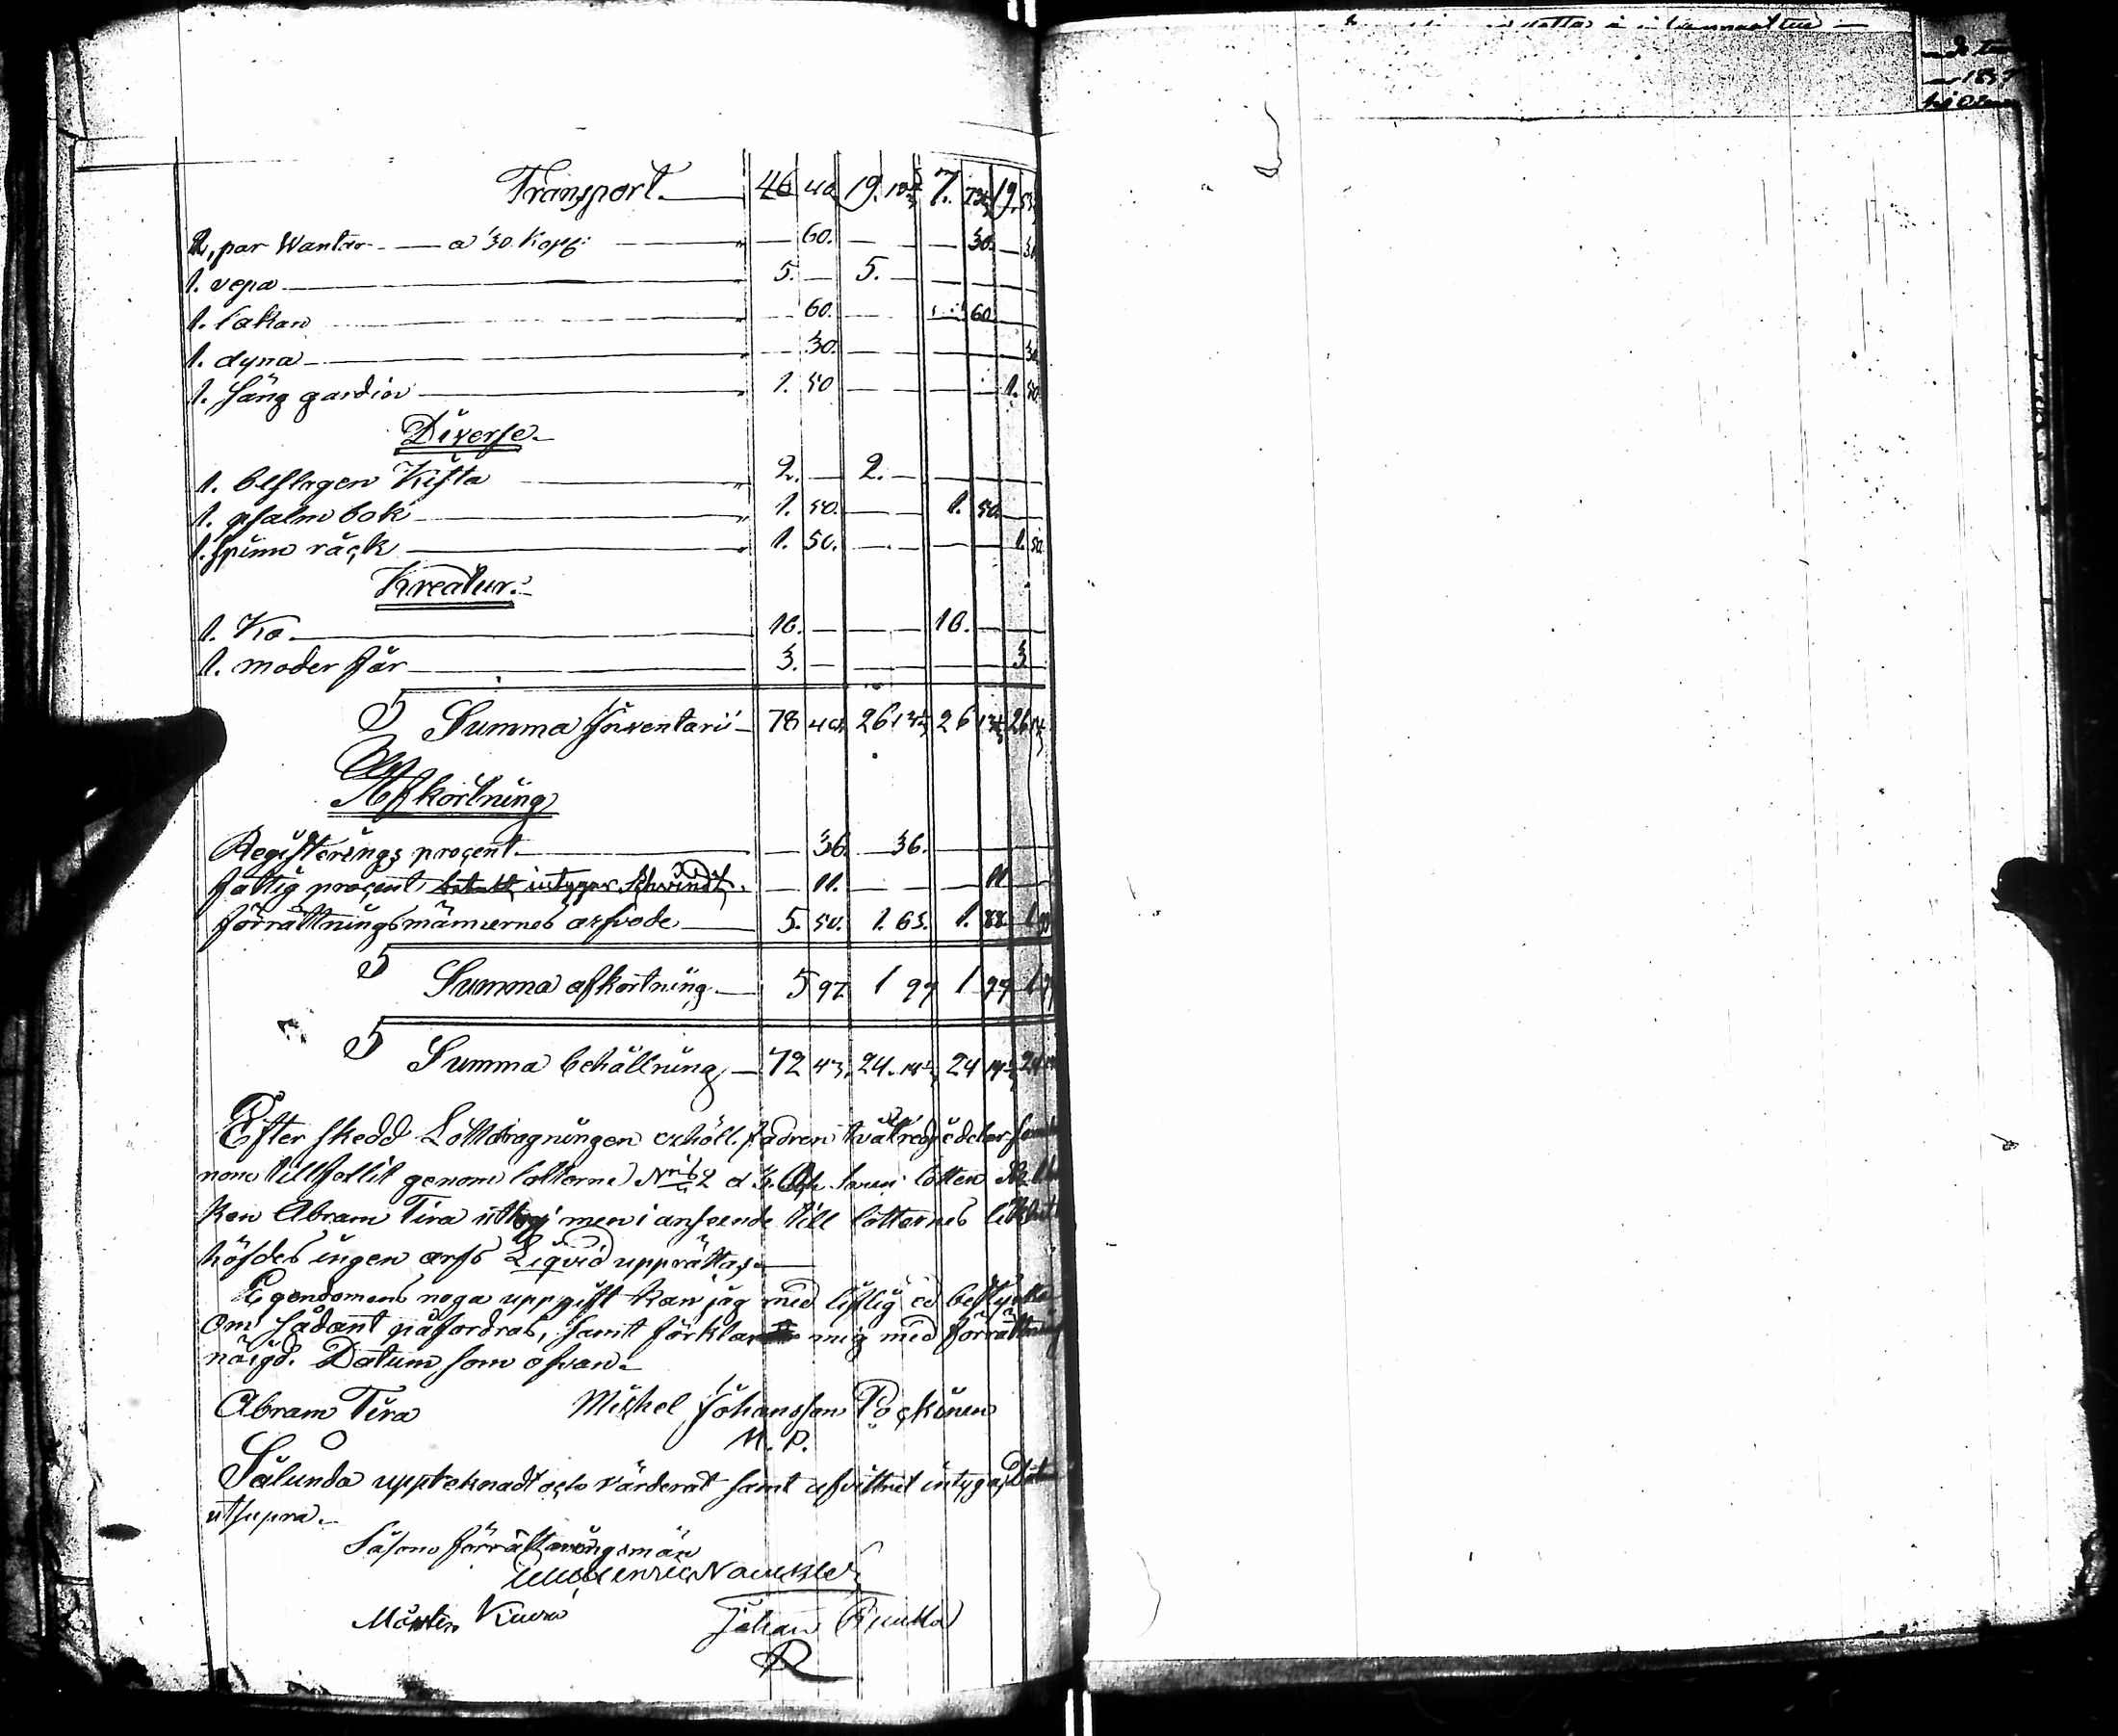 Transport. 46 40 19. 13⅓ 7. 73⅓ 19. 53⅓
2, par Wantar a 30. Kop: — 60. — — — 30. — 30
1. vepa 5. — 5. —
1. lakan — 60. — — — 60
1. dyna — 30. — — — — — 30
1. säng gardin 1. 50 — — — — 1. 50
Diverse
1. beslagen Kista 2. — 2. —
1. psalm bok 1. 50. — — 1. 50.
1. spinn råck 1. 50. — — — — 1. 50
Kreatur.
1. Ko 16. — — — 16. —
1. moder får 3. — — — — — 3.
S Summa Inventarii 78 40 26 13⅓ 26 13⅓ 26 13⅓
Afkortning
Registerings procent — 36. — 36.
fattig procent betalt, intygar Schvindt. — 11. — — — 11
förrättningsmännernes arfvode 5. 50. 1. 63. 1. 88 1 99
S Summa afkortning 5 97 1 99 1 99 1 99
S Summa behållning 72 43. 24. 14⅓ 24 14⅓ 24 14
Efter skedd Lottdragningen erhöll fadren två tredjedelar som
nom tillfallit genom lotterne N:ris 2 & 3. Och lotten
ken Abram Tira uttog men i anseende till lotternes likhet
höfdes ingen arfs Liqvid upprättas.
Egendomens noga uppgift kan jag med liflig ed bestyrka
Om sådant påfordras, samt förklarar mig med förrättning
nöigd. Datum som ofvan.
Abram Tira Michel Johansson Pöckönen
M. P.
Sålunda uppteknadt och värderat samt afvittrat intygas Datum
ut supra.
Såsom förrättningsmän
Mårten Kiuru Johan